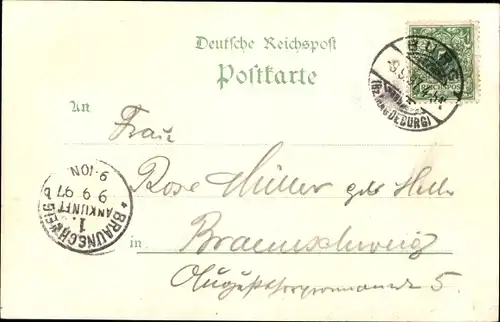 Deutsche Reichspost
Postkarte
BURG
(BZ. MAGDEBURG)
REICHSPOST
An
Frau
Rose Müller geb.
in Braunschweig
5.
BRAUNSCHWEIG
1.
ANKUNFT
9 9 97
9-10N